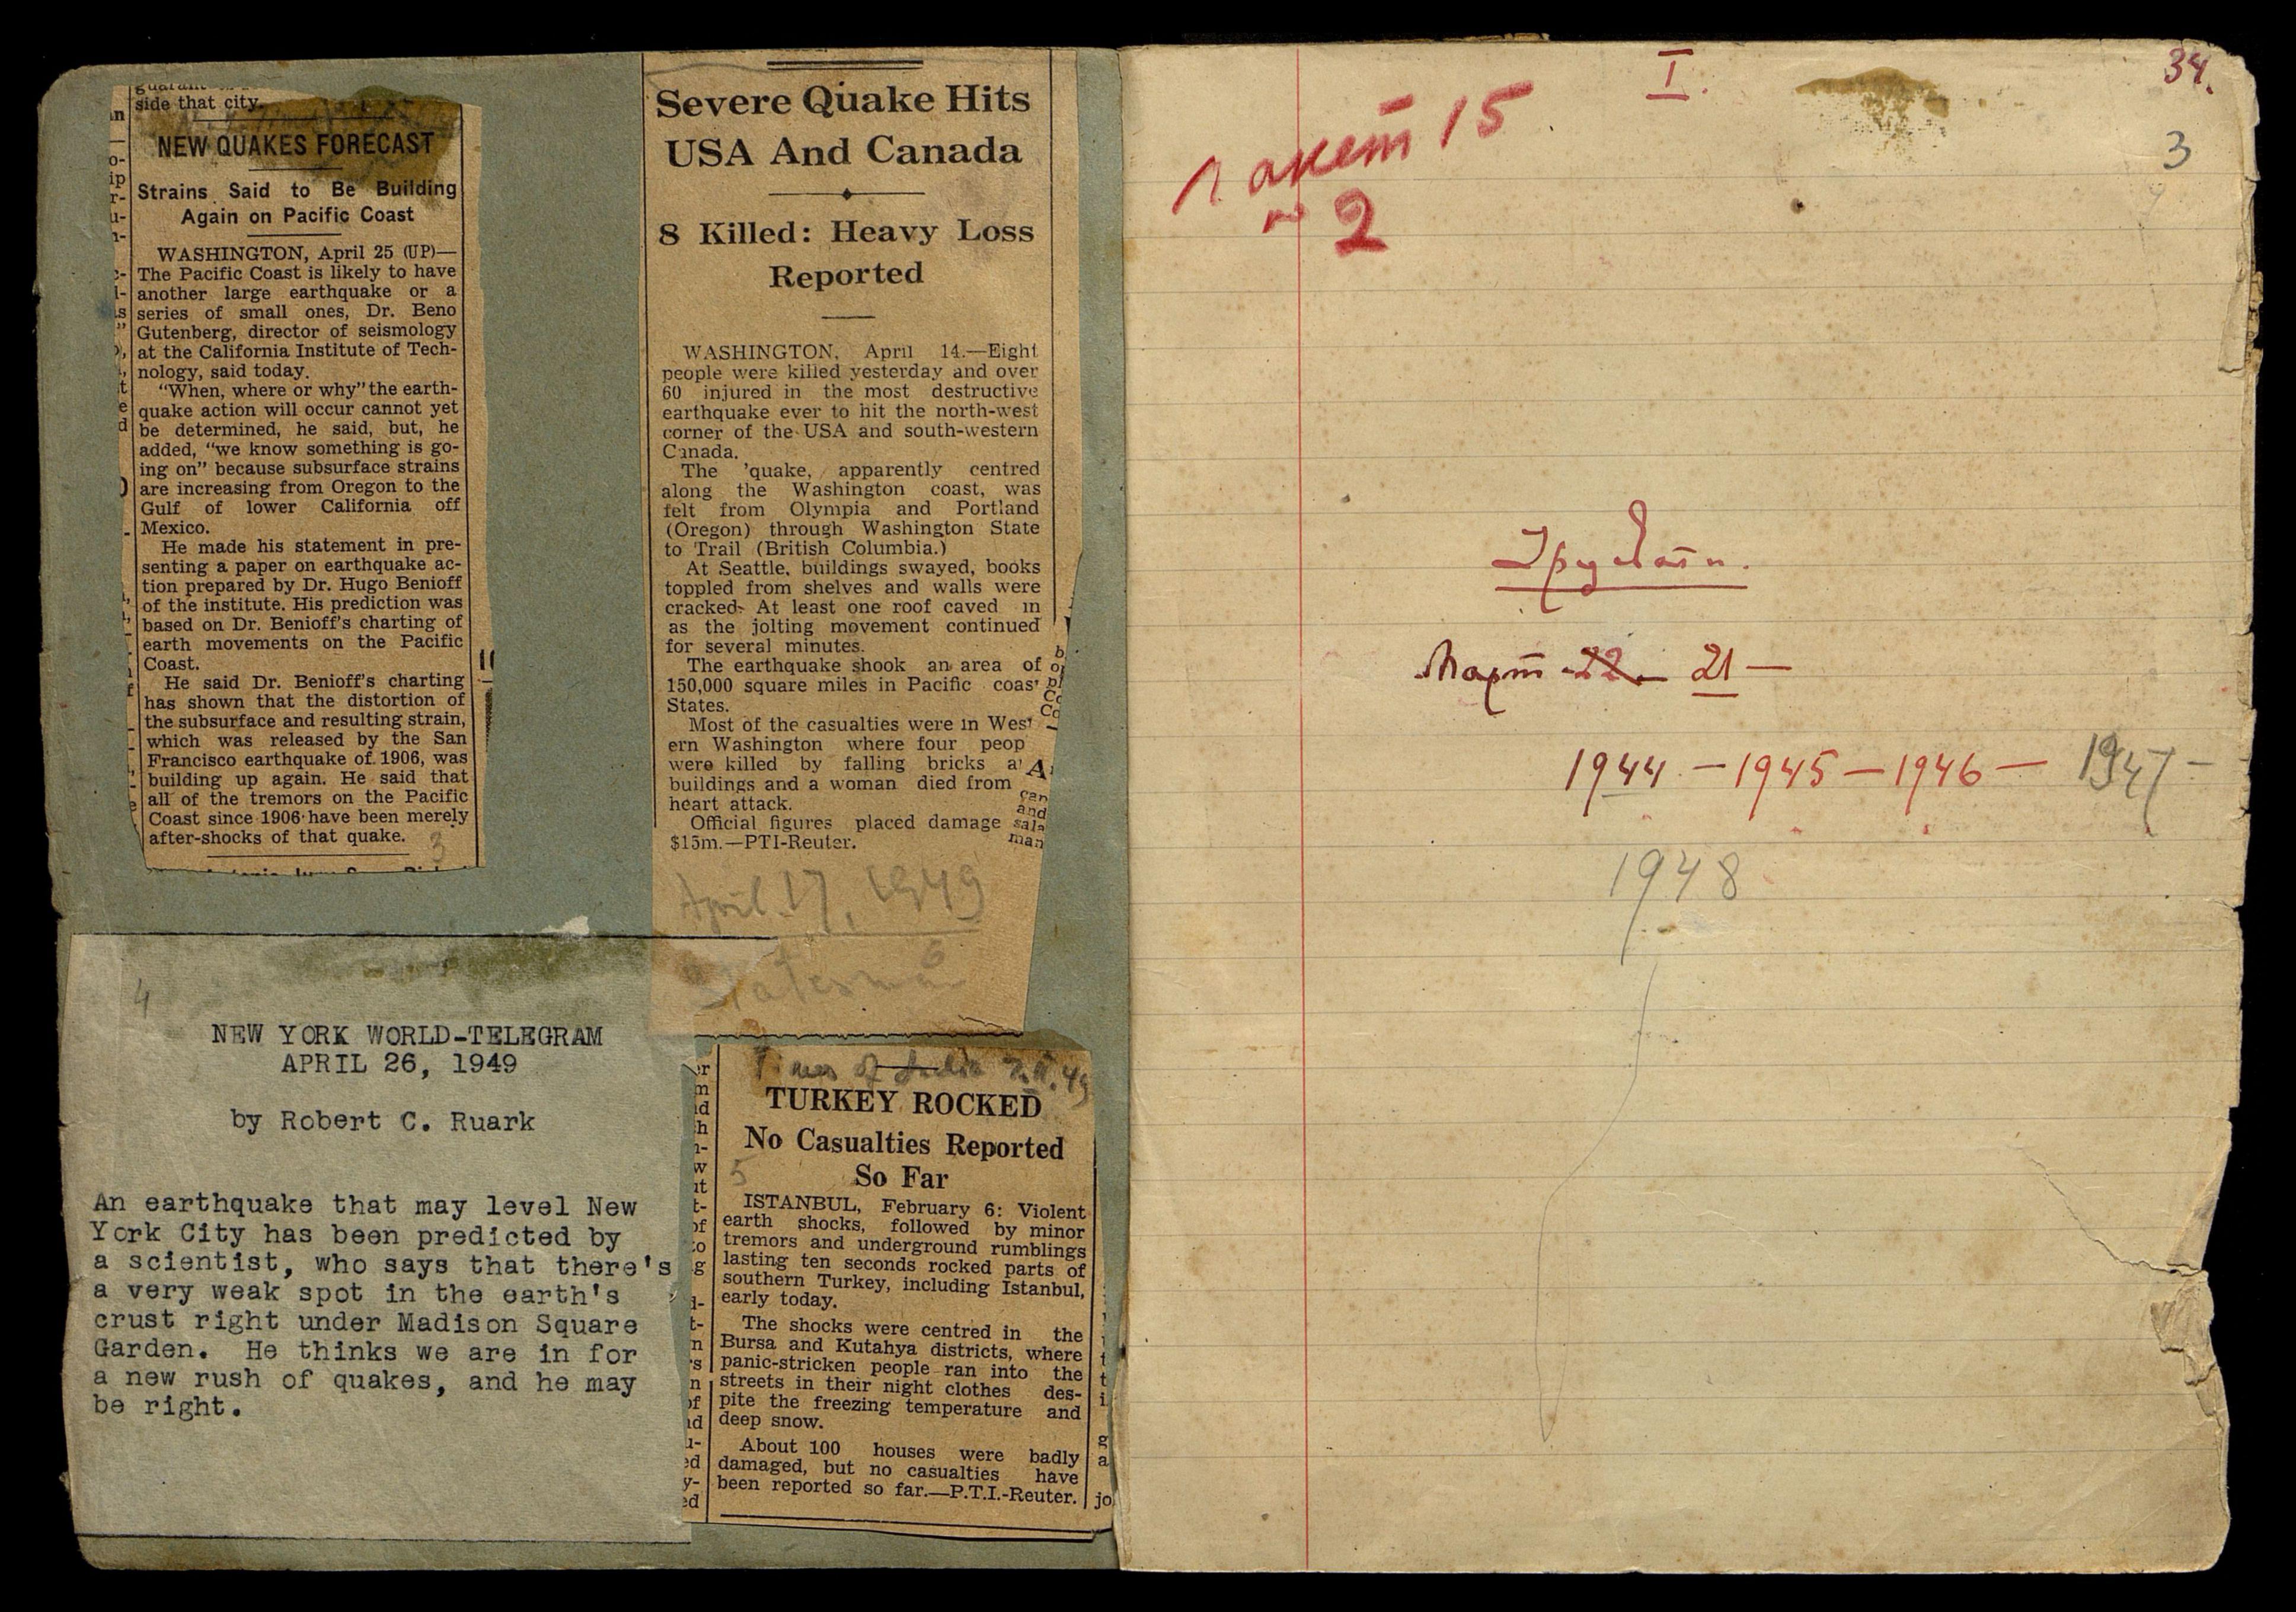 side that city.
NEW QUAKES FORECAST
Strains Said to Be Building
Again on Pacific Coast
WASHINGTON, April 25 (UP)—
The Pacific Coast is likely to have
another large earthquake or a
series of small ones, Dr. Beno
Gutenberg, director of seismology
at the California Institute of Tech-
nology, said today.
"When, where or why" the earth-
quake action will occur cannot yet
be determined, he said, but, he
added, "we know something is go-
ing on" because subsurface strains
are increasing from Oregon to the
Gulf of lower California off
Mexico.
He made his statement in pre-
senting a paper on earthquake ac-
tion prepared by Dr. Hugo Benioff
of the institute. His prediction was
based on Dr. Benioff's charting of
earth movements on the Pacific
Coast.
He said Dr. Benioff's charting
has shown that the distortion of
the subsurface and resulting strain,
which was released by the San
Francisco earthquake of 1906, was
building up again. He said that
all of the tremors on the Pacific
Coast since 1906 have been merely
after-shocks of that quake.
3
4
NEW YORK WORLD-TELEGRAM
APRIL 26, 1949
by Robert C. Ruark
An earthquake that may level New
York City has been predicted by
a scientist, who says that there's
a very weak spot in the earth's
crust right under Madison Square
Garden. He thinks we are in for
a new rush of quakes, and he may
be right.
Severe Quake Hits
USA And Canada
8 Killed: Heavy Loss
Reported
WASHINGTON, April 14.—Eight
people were killed yesterday and over
60 injured in the most destructive
earthquake ever to hit the north-west
corner of the USA and south-western
Canada.
The 'quake, apparently centred
along the Washington coast, was
felt from Olympia and Portland
(Oregon) through Washington State
to Trail (British Columbia.)
At Seattle, buildings swayed, books
toppled from shelves and walls were
cracked. At least one roof caved in
as the jolting movement continued
for several minutes.
The earthquake shook an area of
150,000 square miles in Pacific coas
States.
Most of the casualties were in West
ern Washington where four peop
were killed by falling bricks a
buildings and a woman died from
heart attack.
Official figures placed damage
$15m.—PTI-Reuter.
April 17, 1949
6
Statesman
Times of India 7.II.49
TURKEY ROCKED
No Casualties Reported
So Far
5
ISTANBUL, February 6: Violent
earth shocks, followed by minor
tremors and underground rumblings
lasting ten seconds rocked parts of
southern Turkey, including Istanbul,
early today.
The shocks were centred in the
Bursa and Kutahya districts, where
panic-stricken people ran into the
streets in their night clothes des-
pite the freezing temperature and
deep snow.
About 100 houses were badly
damaged, but no casualties have
been reported so far.—P.T.I.-Reuter.
I.
34.
3
Пакет 15
№ 2
Март 22 — 21 —
1944 — 1945 — 1946 — 1947 —
1948